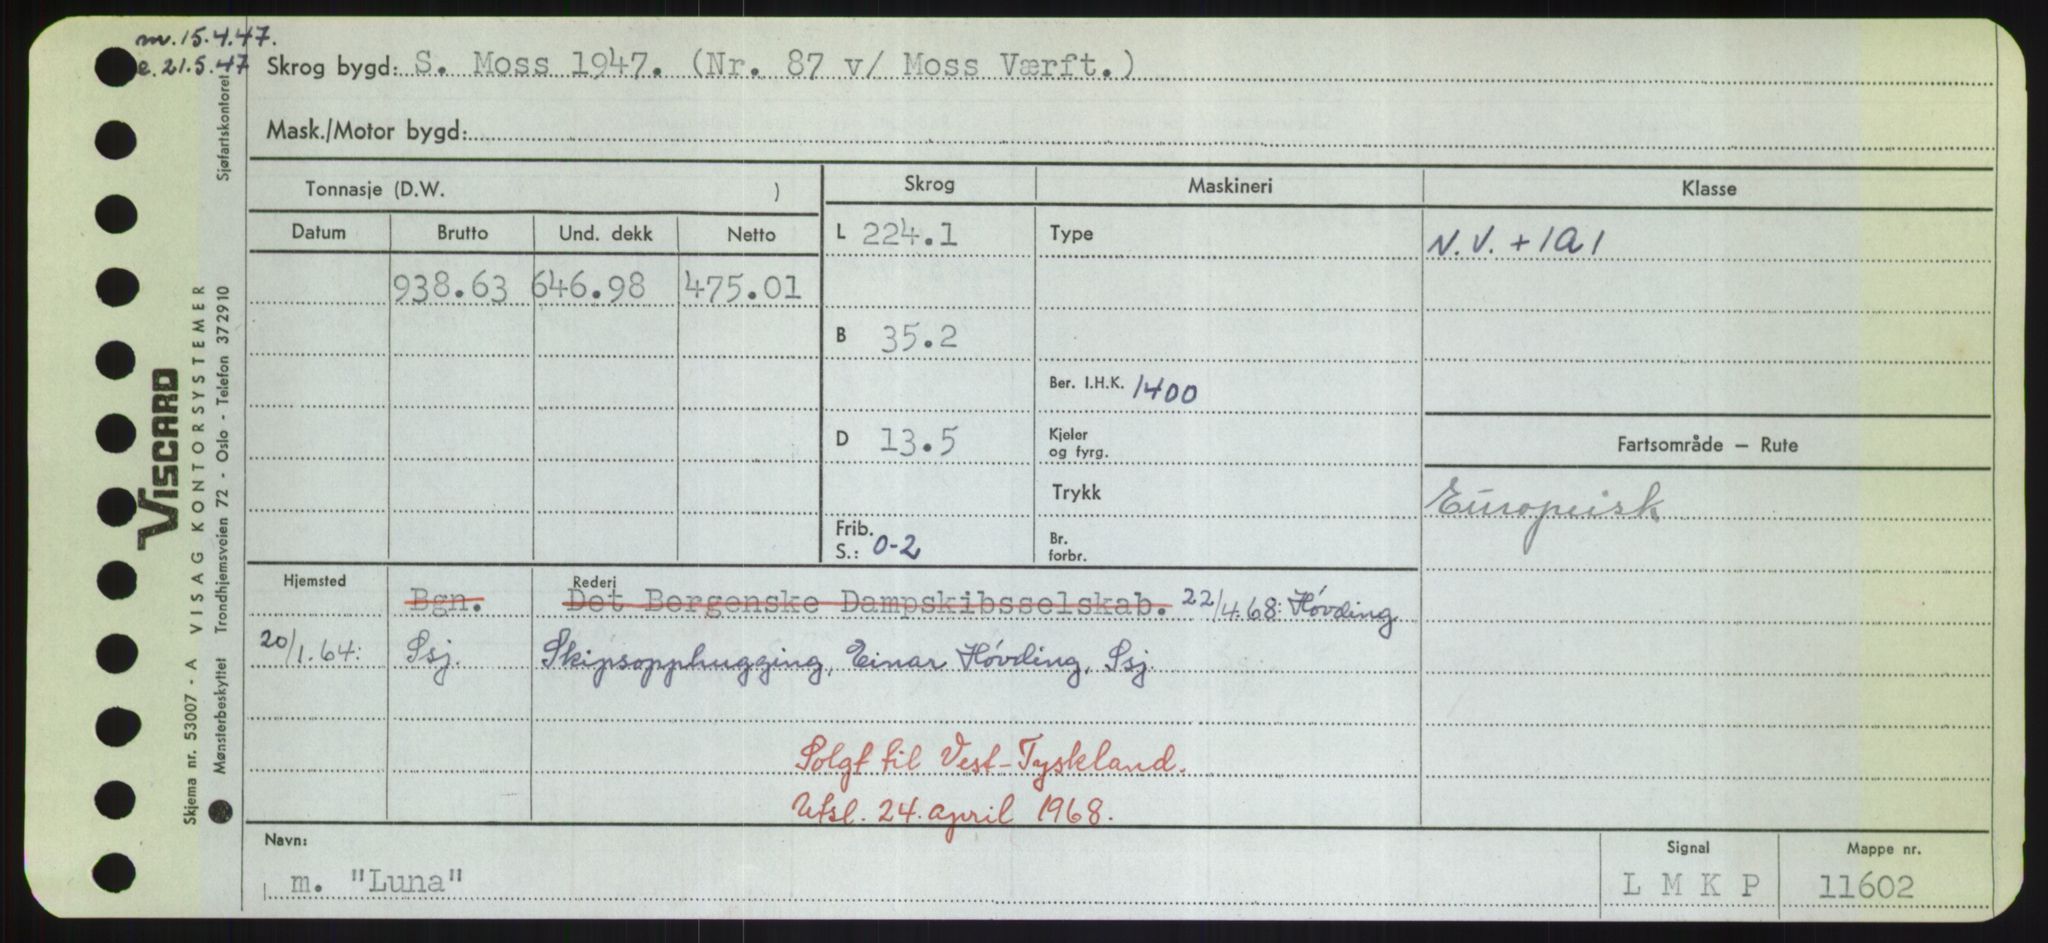 m. 15.4.47.
e. 21.5.47
Skrog bygd: S. Moss 1947. (Nr. 87 v/ Moss Værft.)
Mask./Motor bygd:
Tonnasje (D.W. )
Skrog
Maskineri
Klasse
Datum
Brutto
Und. dekk
Netto
L 224.1
Type
N.V. + 1A1
938.63
646.98
475.01
B 35.2
Ber. I.H.K. 1400
D 13.5
Kjeler
og fyrg.
Fartsområde — Rute
Trykk
Europeisk
Frib.
S.: 0-2
Br.
forbr.
Hjemsted
Rederi
Bgn.
Det Bergenske Dampskibsselskab. 22/4.68: Høvding
20/1.64:
Ssj.
Skipsopphugging, Einar Høvding, Ssj.
Solgt til Vest-Tyskland.
Utsl. 24. april 1968.
Navn:
m. "Luna"
Signal
L M K P
Mappe nr.
11602
VISCARD
Skjema nr. 53007 - A VISAG KONTORSYSTEMER
Mønsterbeskyttet Trondhjemsveien 72 - Oslo - Telefon 372910
Sjøfartskontoret